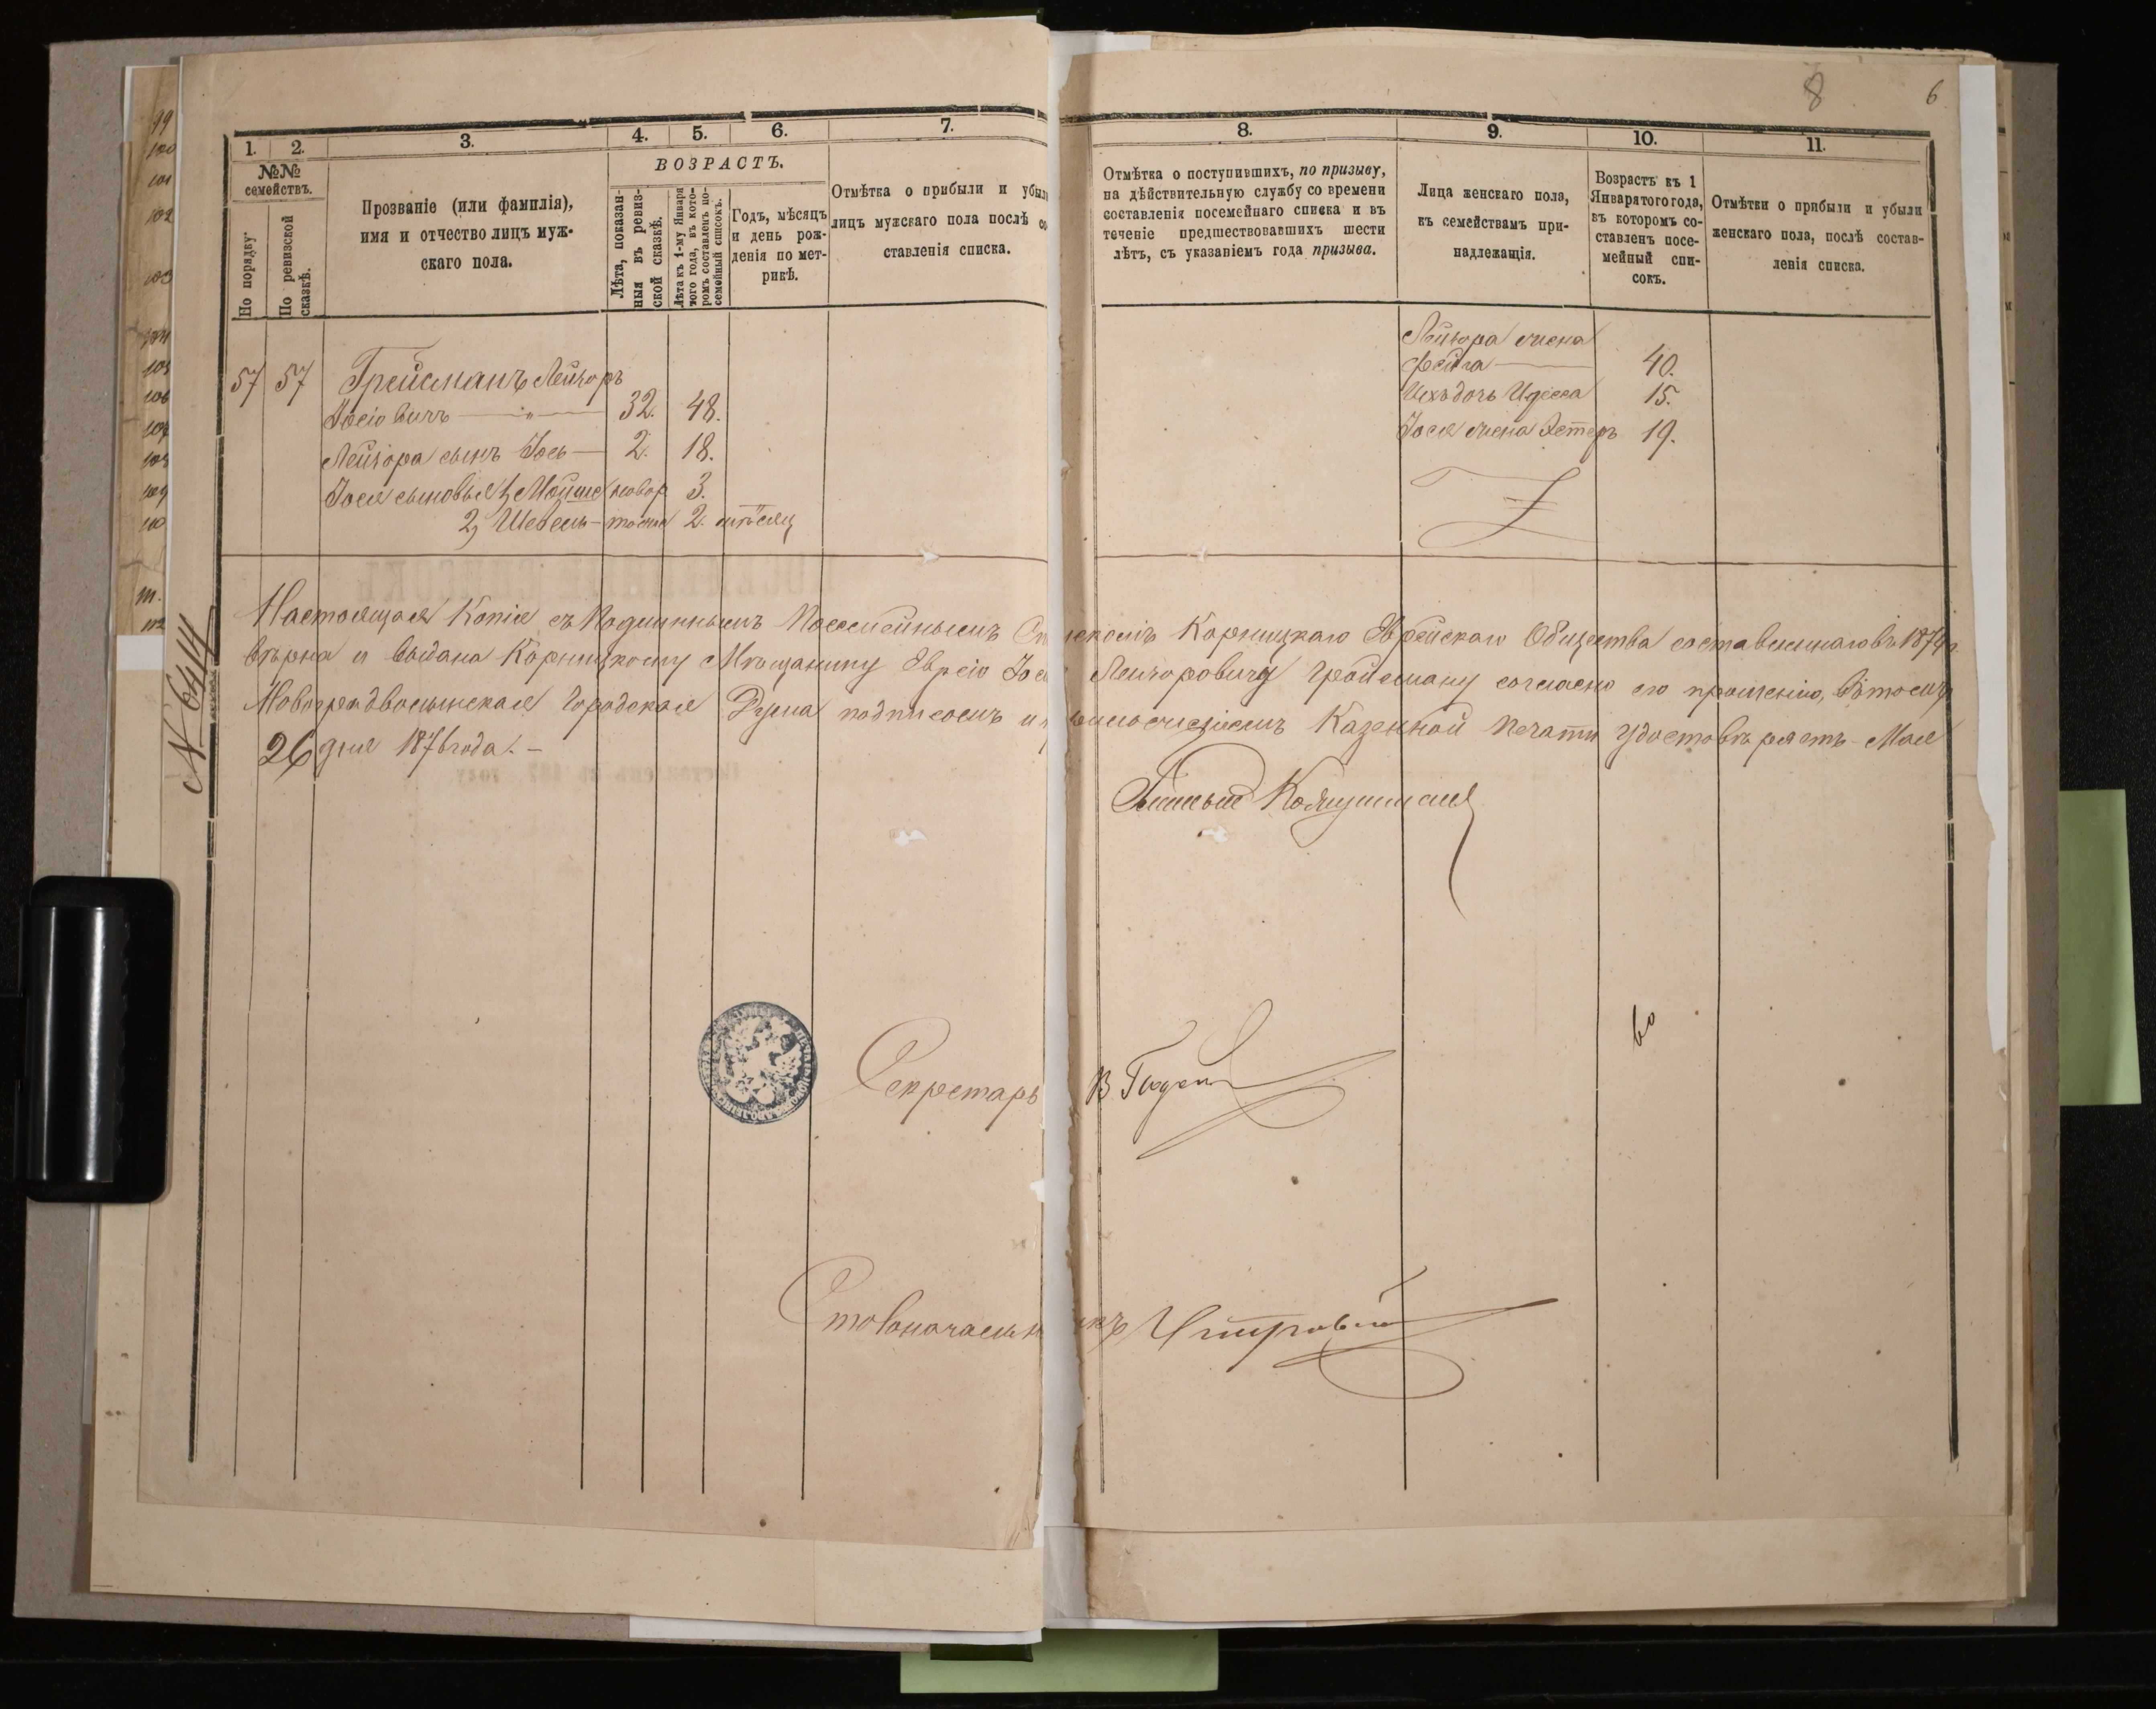 8 6
1. 2. 3. 4. 5. 6. 7. 8. 9. 10. 11.
№№ семействъ.
По порядку.
По ревизской сказкѣ.
Прозваніе (или фамилія),
имя и отчество лицъ муж-
скаго пола.
ВОЗРАСТЪ.
Лѣта, показан-
ныя въ ревиз-
ской сказкѣ.
Лѣта къ 1-му Января
того года, въ кото-
ромъ составленъ по-
семейный списокъ.
Годъ, мѣсяцъ
и день рож-
денія по мет-
рикѣ.
Отмѣтка о прибыли и убыли
лицъ мужскаго пола послѣ со
ставленія списка.
Отмѣтка о поступившихъ, по призыву,
на дѣйствительную службу со времени
составленія посемейнаго списка и въ
теченіе предшествовавшихъ шести
лѣтъ, съ указаніемъ года призыва.
Лица женскаго пола,
къ семействамъ при-
надлежащія.
Возрастъ къ 1
Января того года,
въ которомъ со-
ставленъ посе-
мейный спи-
сокъ.
Отмѣтки о прибыли и убыли
женскаго пола, послѣ состав-
ленія списка.
57 57 Гройсманъ Лейзоръ
Іосіовичъ — 32. 48.
Лейзора сынъ Іось — 2. 18.
Іося сыновья 1, Мойше новор 3.
2, Шевель — тоже 2. мѣсяц
Лейзора жена
Фейга — 40.
Ихъ дочь Идесса 15.
Іося жена Эстеръ 19.
Настоящая Копія съ Подлиннымъ Посемейнымъ Спискомъ Корницкаго Еврейскаго Общества составленнаго въ 1874 г.
вѣрна и выдана Корницкому Мѣщанину Еврею Іосю Лейзоровичу Гройсману согласно его прошенію, въ томъ
Новоградволынская Городская Дума подписомъ и приложеніемъ Казенной печати удостовѣряетъ – Мая
26 дня 1876 года. –
№ 6414
Секретарь
Столоначальникъ